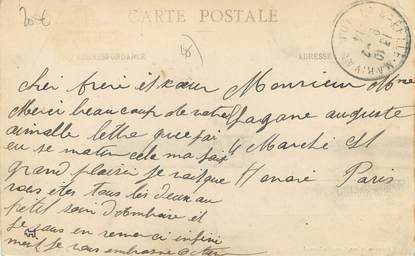 CARTE POSTALE
20€
CORRESPONDANCE
ADRESSE
cher frere et sœur
Merci beaucoup de votre
aimable lettre que j'ai
eu se matin cela ma fait
grand plaisir je vois que
vous etes tous les deux au
petit soin d'Ambroise et
je vous en remerci infini
ment je vous embrasse
Monsieur Mme
Lagane auguste
4 Marché St
Honoré Paris